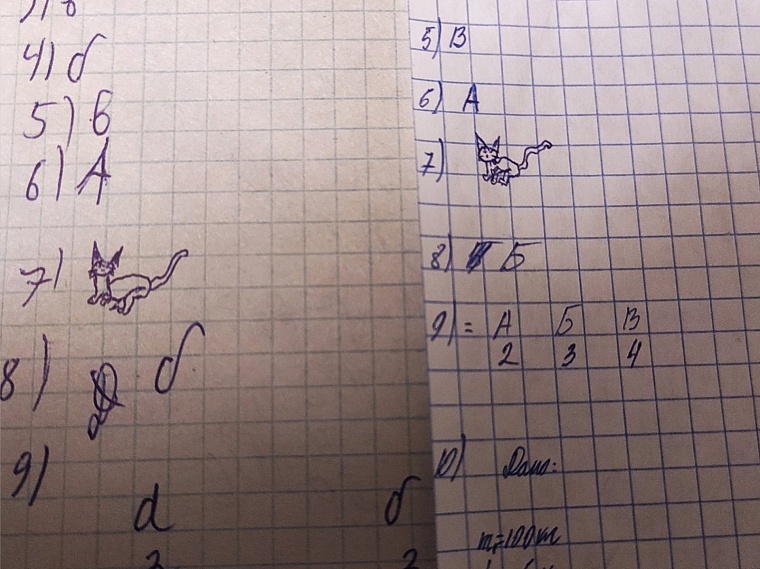 4) б
5) в
6) А
7)
8) б
9)
а б
5) В
6) А
7)
8) Б
9) = А Б В
2 3 4
10) Дано:
m=100кг